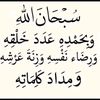 سُبْحَانَ اللهِ
وَبِحَمْدِهِ عَدَدَ خَلْقِهِ
وَرِضَاءَ نَفْسِهِ وَزِنَةَ عَرْشِهِ
وَمِدَادَ كَلِمَاتِهِ